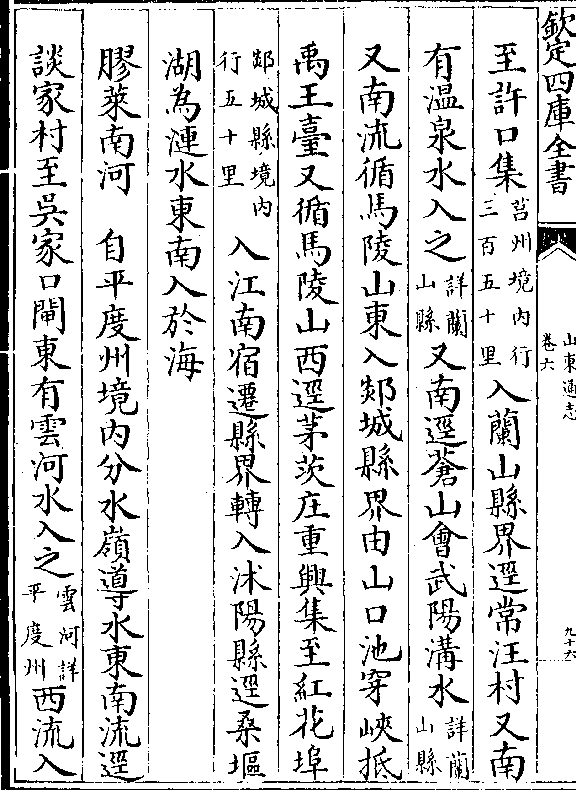 欽定四庫全書
山東通志
卷六
九十六
至許口集莒州境内行三百五十里入蘭山縣界逕常汪村又南
有温泉水入之詳蘭山縣又南逕蒼山會武陽溝水詳蘭山縣
又南流循馬陵山東入郯城縣界由山口池穿峽抵
禹王臺又循馬陵山西逕茅茨庄重興集至紅花埠
郯城縣境内行五十里入江南宿遷縣界轉入沭陽縣逕桑堰
湖為漣水東南入於海
膠萊南河　自平度州境内分水嶺導水東南流逕
談家村至吳家口閘東有雲河水入之雲河詳平度州西流入